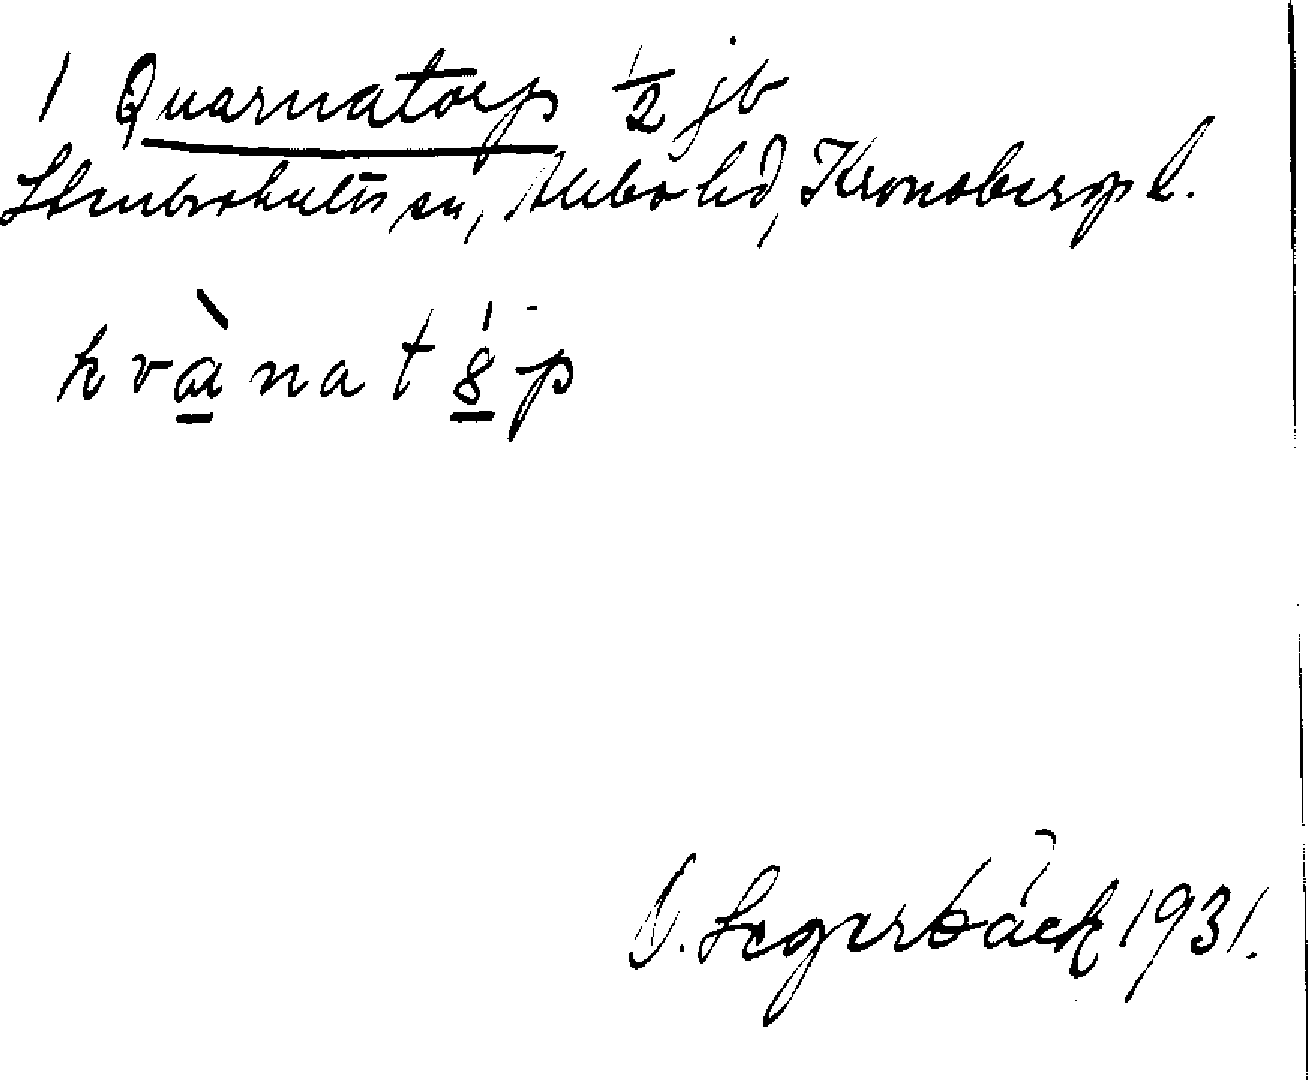 1 Quarnatorp 1/2 jb
Stenbrohults sn, Allbo hd, Kronobergs l.
kvànat8́p
O. Segerbäck 1931.